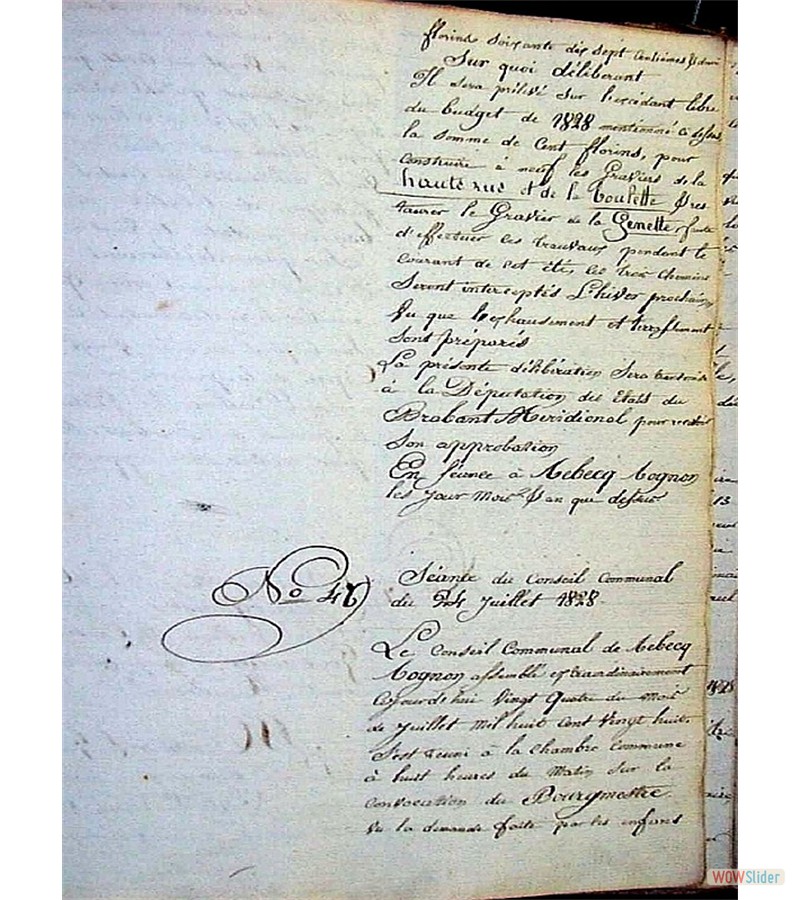 florins soixante dix sept centièmes & demi
Sur quoi délibérant
Il sera prélevé sur l'excédant libre
du budget de 1828 mentionné ci dessus
la somme de Cent florins, pour
construire à neuf les Graviers de la
haute rue et de la boulette & res
taurer le Gravier de la Genette, faute
d'effectuer ces travaux pendant le
courant de cet été, les trois chemins
Seront interceptés L'hiver prochain,
Vu que l'exhausement et terrassement
sont préparés
La présente délibération Sera transmise
à la Députation des Etats du
Brabant Méridional pour recevoir
son approbation
En Séance à Rebecq Rognon
les Jour Mois & an que dessus
No 48
Séance du Conseil Communal
du 24 Juillet 1828.
Le Conseil Communal de Rebecq
Rognon assemblé extraordinairement
Cejourd'hui Vingt Quatre du Mois
de Juillet Mil huit Cent Vingt huit
S'est réuni à la Chambre Commune
à huit heures du Matin sur la
convocation du Bourgmestre
Vu la demande faite par les enfans
WOWSlider